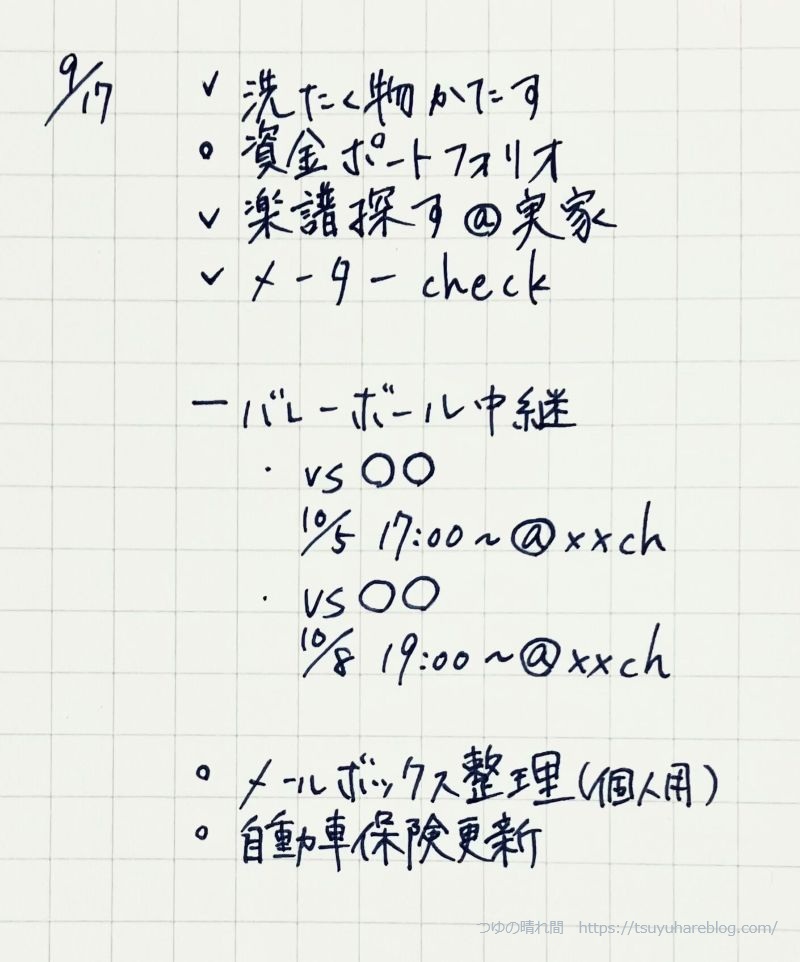 9/17 ✓ 洗たく物かたす
○ 資金ポートフォリオ
✓ 楽譜探す@実家
✓ メーター check
ー バレーボール中継
・ vs ○○
10/5 17:00~@××ch
・ vs ○○
10/8 19:00~@××ch
○ メールボックス整理(個人用)
○ 自動車保険更新
つゆの晴れ間 https://tsuyuhareblog.com/